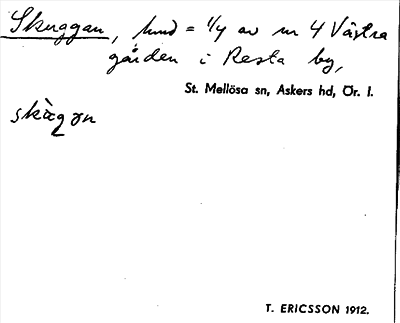 Skuggan, hmd = 1/4 av nr 4 Västra
gården i Resta by,
St. Mellösa sn, Askers hd, Ör. l.
skàgɷn
T. ERICSSON 1912.